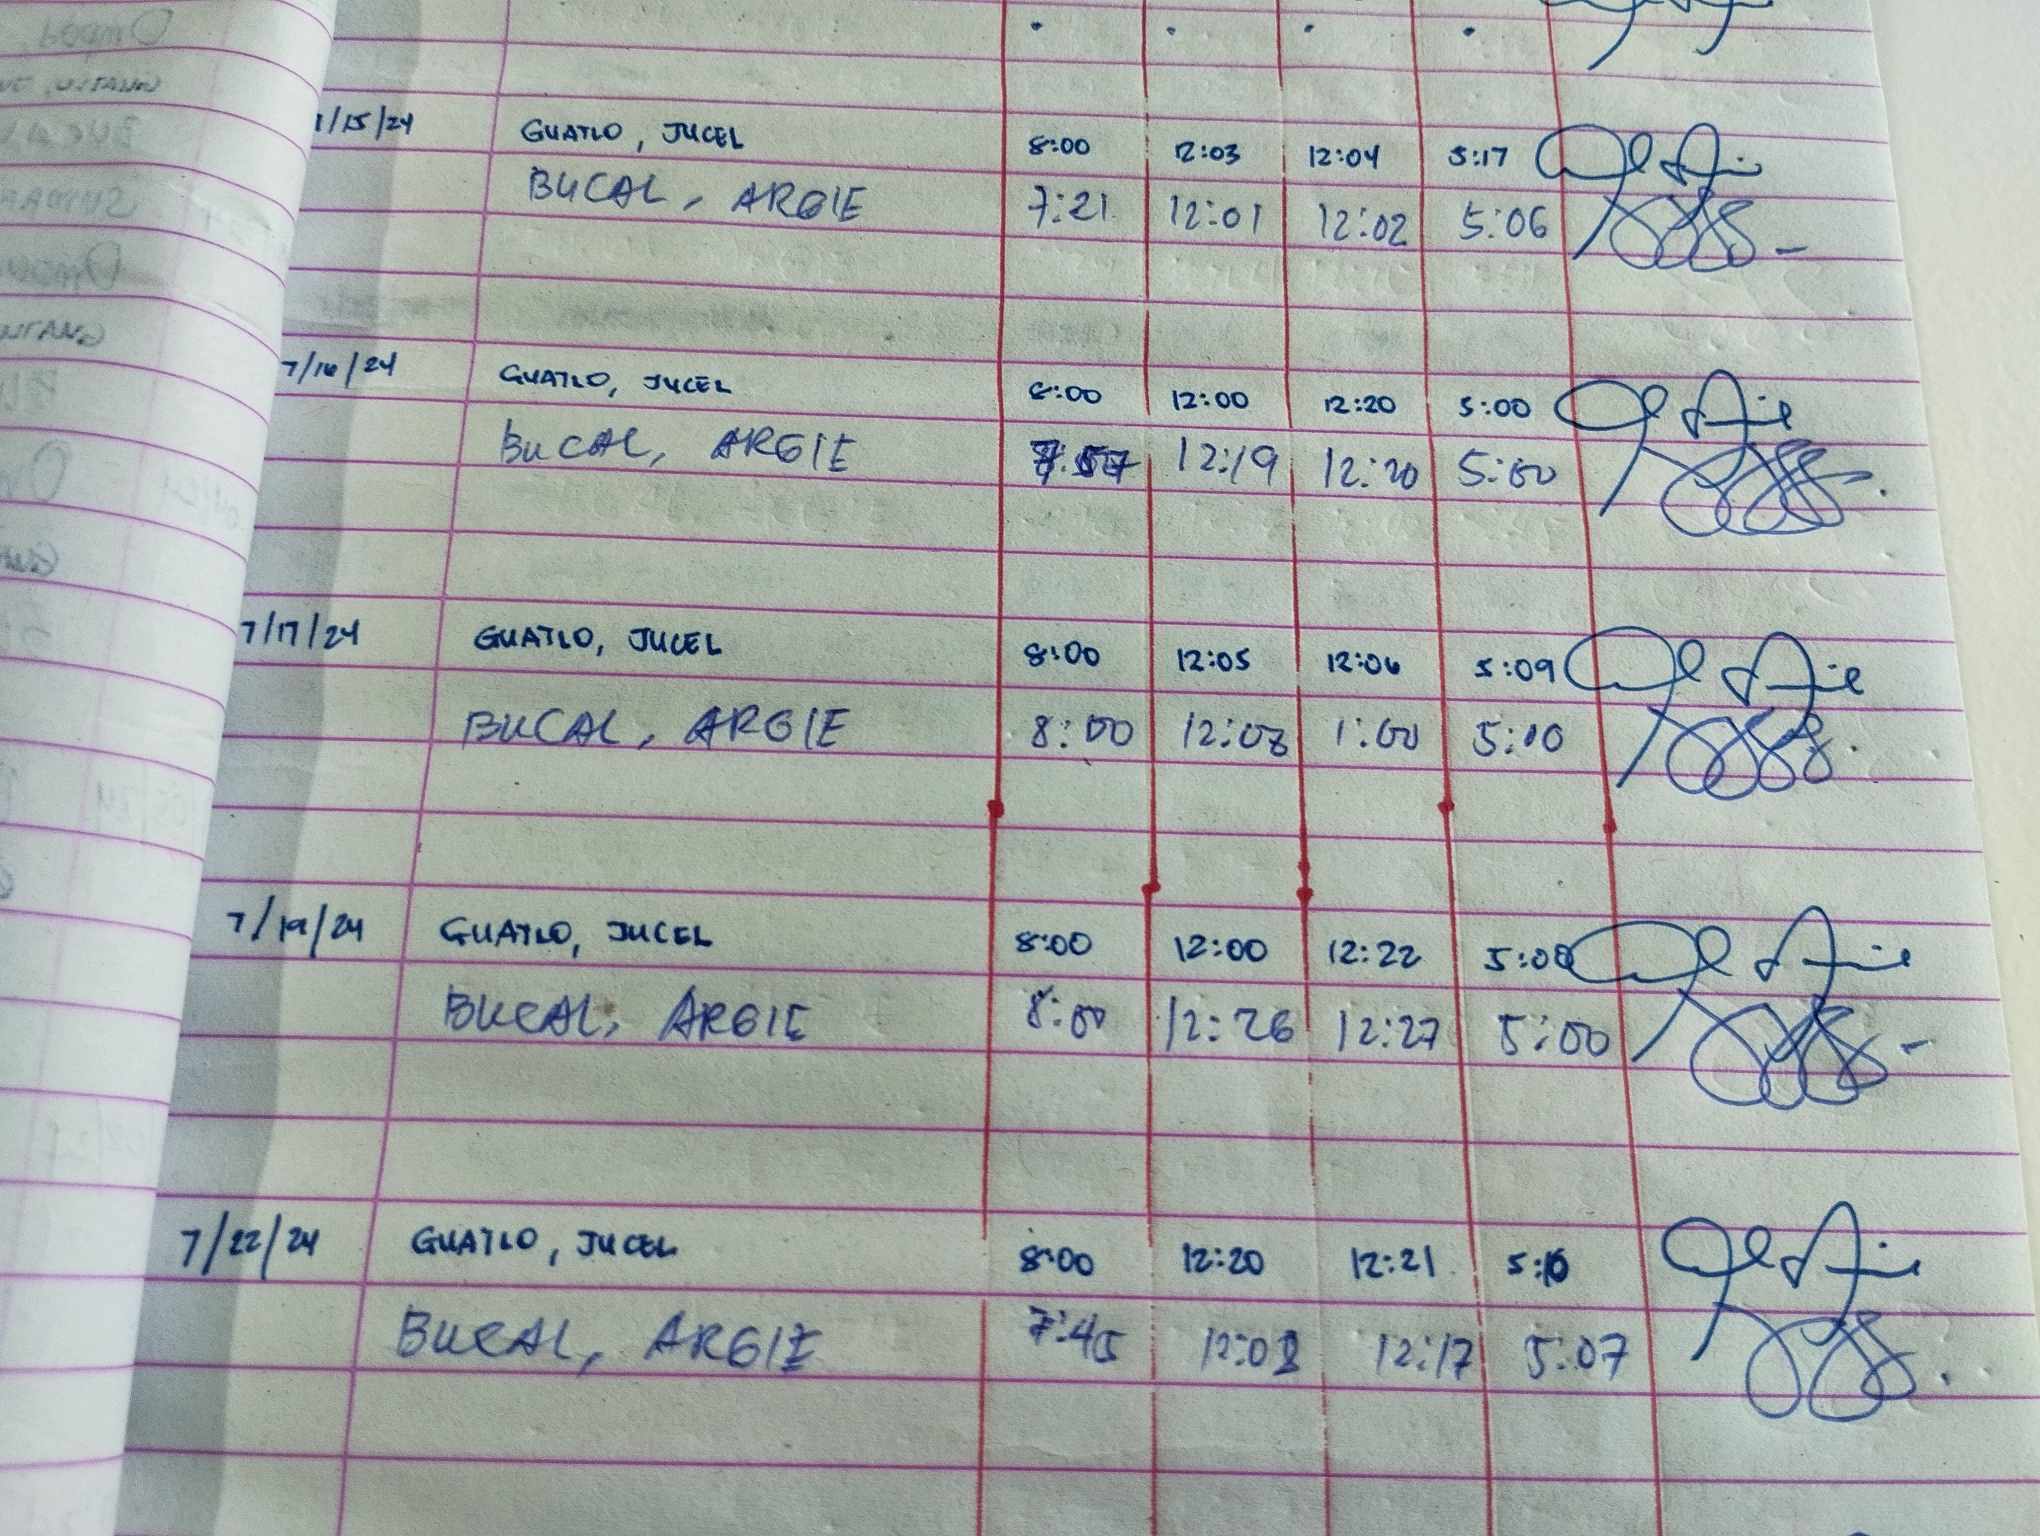 /15/24 GUATLO, JUCEL 8:00 12:03 12:04 5:17
BUCAL, ARGIE 7:21 12:01 12:02 5:06
7/16/24 GUATLO, JUCEL 8:00 12:00 12:20 5:00
BUCAL, ARGIE 7:57 12:19 12:20 5:00
7/17/24 GUATLO, JUCEL 8:00 12:05 12:06 5:09
BUCAL, ARGIE 8:00 12:08 1:00 5:10
7/19/24 GUATLO, JUCEL 8:00 12:00 12:22 5:08
BUCAL, ARGIE 8:00 12:26 12:27 5:00
7/22/24 GUATLO, JUCEL 8:00 12:20 12:21
BUCAL, ARGIE 7:45 12:17 5:07